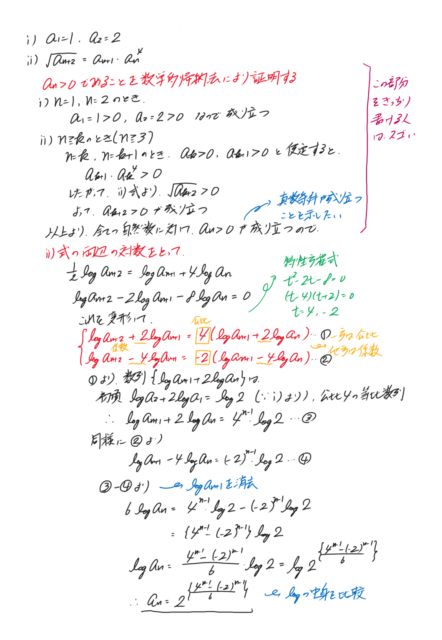 i) a₁=1, a₂=2
ii) √aₙ₊₂ = aₙ₊₁・aₙ⁴
aₙ>0であることを数学的帰納法により証明する
i) n=1, n=2のとき.
a₁=1>0, a₂=2>0 なので成り立つ
ii) n≧kのとき(n≧3)
n=k, n=k+1のとき. aₖ>0, aₖ₊₁>0と仮定すると.
aₖ₊₁・aₖ⁴>0
したがって. ii)式より. √aₖ₊₂>0
よって. aₖ₊₂>0が成り立つ
以上より. 全ての自然数に対して. aₙ>0が成り立つので.
この部分
をきっちり
書ける人
は、スゴい
真数条件が成り立つ
ことを示したい
ii)式の両辺の対数をとって.
½log aₙ₊₂ = log aₙ₊₁ + 4log aₙ
log aₙ₊₂ - 2log aₙ₊₁ - 8log aₙ = 0
特性方程式
t²-2t-8=0
(t-4)(t+2)=0
t=4, -2
これを変形して.
公比
log aₙ₊₂ + 2log aₙ₊₁ = 4(log aₙ₊₁ + 2log aₙ)…①
log aₙ₊₂ - 4log aₙ₊₁ = -2(log aₙ₊₁ - 4log aₙ)…②
係数
一方は公比
他方は係数
①より. 数列{log aₙ₊₁ + 2log aₙ}は
初項 log a₂ + 2log a₁ = log 2 (∵ i)より), 公比4の等比数列
∴ log aₙ₊₁ + 2log aₙ = 4ⁿ⁻¹ log 2 …③
同様に②より
log aₙ₊₁ - 4log aₙ = (-2)ⁿ⁻¹ log 2 …④
③-④より log aₙ₊₁を消去
6log aₙ = 4ⁿ⁻¹ log 2 - (-2)ⁿ⁻¹ log 2
= {4ⁿ⁻¹ - (-2)ⁿ⁻¹} log 2
log aₙ = (4ⁿ⁻¹ - (-2)ⁿ⁻¹)/6 ・log 2 = log 2^{(4ⁿ⁻¹ - (-2)ⁿ⁻¹)/6}
∴ aₙ = 2^{(4ⁿ⁻¹ - (-2)ⁿ⁻¹)/6} logの中身を比較